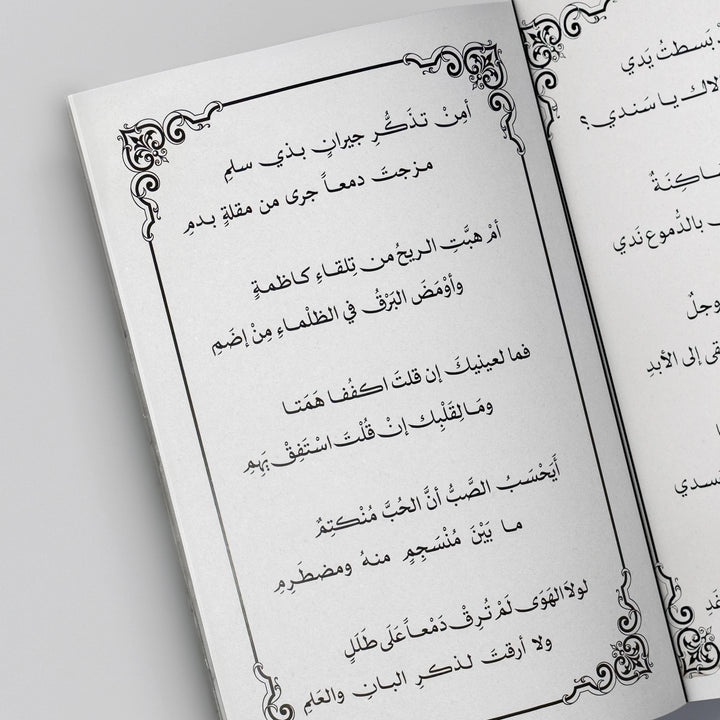 أمِنْ تذَكُّرِ جيرانٍ بذي سلمِ
مزجتَ دمعاً جرى من مقلةٍ بدمِ
أمْ هبَّتِ الريحُ من تلقاءِ كاظمةٍ
وأوْمَضَ البَرْقُ في الظلْماءِ مِنْ إضَمِ
فما لعينيكَ إن قلتَ اكفُفا هَمَتا
ومَا لِقَلْبِك إنْ قُلْتَ اسْتَفِقْ يَهِمِ
أَيَحْسَبُ الصَّبُّ أنَّ الحُبَّ مُنْكتِمٌ
ما بَيْنَ مُنْسَجِمٍ منهُ ومضطَرِمِ
لولاَ الهَوَى لَمْ تُرِقْ دَمْعاً عَلَى طَلَلٍ
ولا أرقتَ لذكرِ البانِ والعَلمِ
بَسطتُ يَدي
يا سَندي؟
بالدُّموع نَدي
وجلٌ
إلى الأبدِ